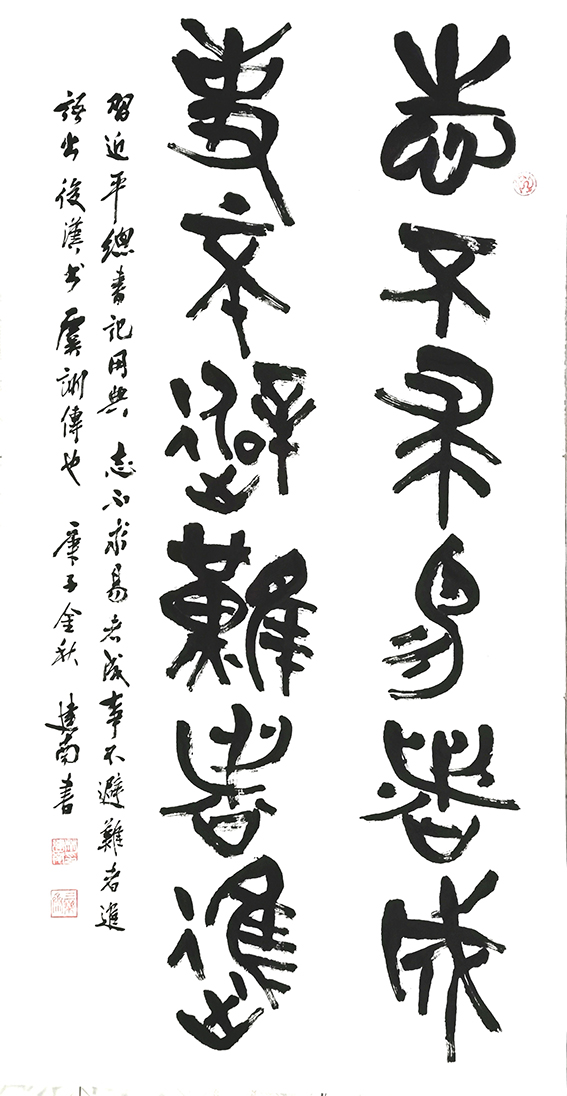 志不求易者成
事不避難者進
習近平總書記用典志不求易者成事不避難者進
語出後漢書虞詡傳也 庚子金秋 建南書